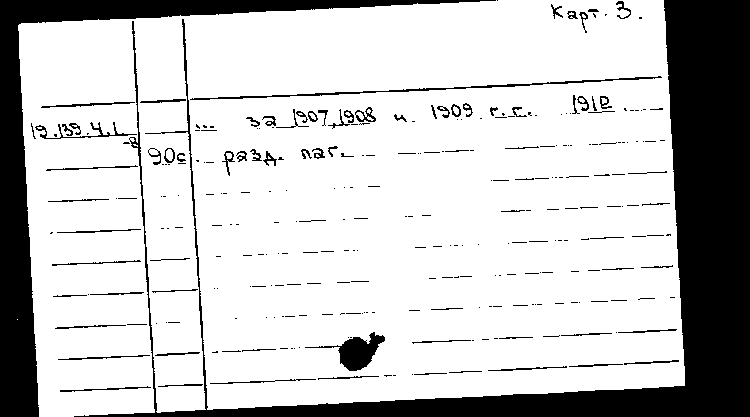 Карт. 3.
... за 1907, 1908 и 1909 г.г. 1910.
19.139.4.1
-8
90с. разд. паг.